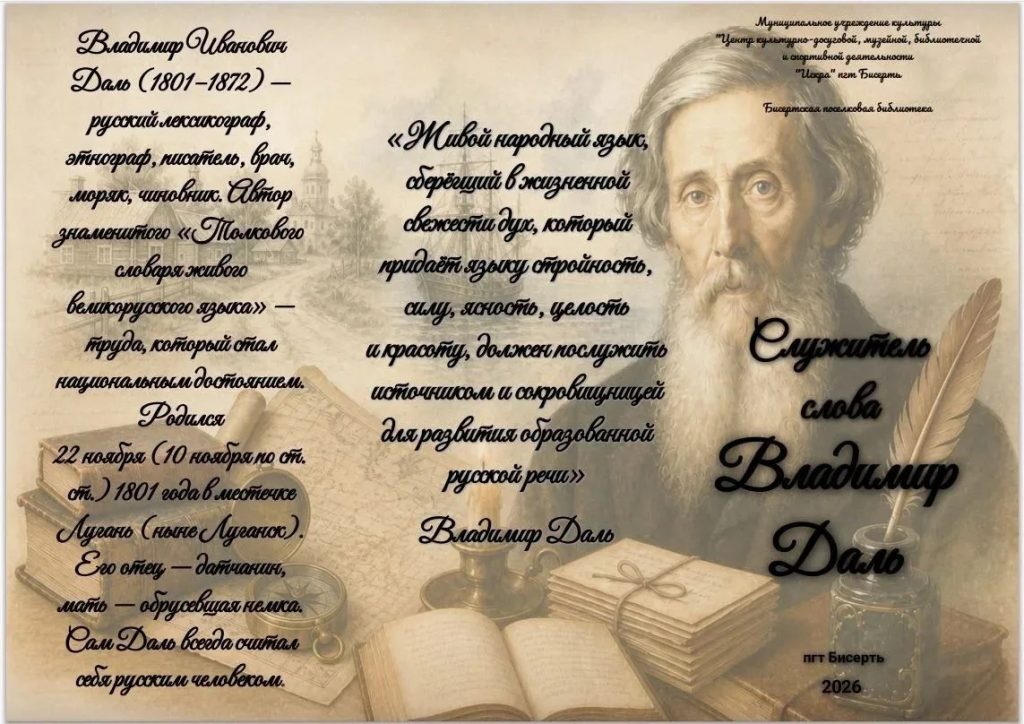 Владимир Иванович
Даль (1801–1872) —
русский лексикограф,
этнограф, писатель, врач,
моряк, чиновник. Автор
знаменитого «Толкового
словаря живого
великорусского языка» —
труда, который стал
национальным достоянием.
Родился
22 ноября (10 ноября по ст.
ст.) 1801 года в местечке
Лугань (ныне Луганск).
Его отец — датчанин,
мать — обрусевшая немка.
Сам Даль всегда считал
себя русским человеком.
«Живой народный язык,
сберёгший в жизненной
свежести дух, который
придаёт языку стройность,
силу, ясность, целость
и красоту, должен послужить
источником и сокровищницей
для развития образованной
русской речи»
Владимир Даль
Муниципальное учреждение культуры
"Центр культурно-досуговой, музейной, библиотечной
и спортивной деятельности
"Искра" пгт Бисерть
Бисертская поселковая библиотека
Служитель
слова
Владимир
Даль
пгт Бисерть
2026